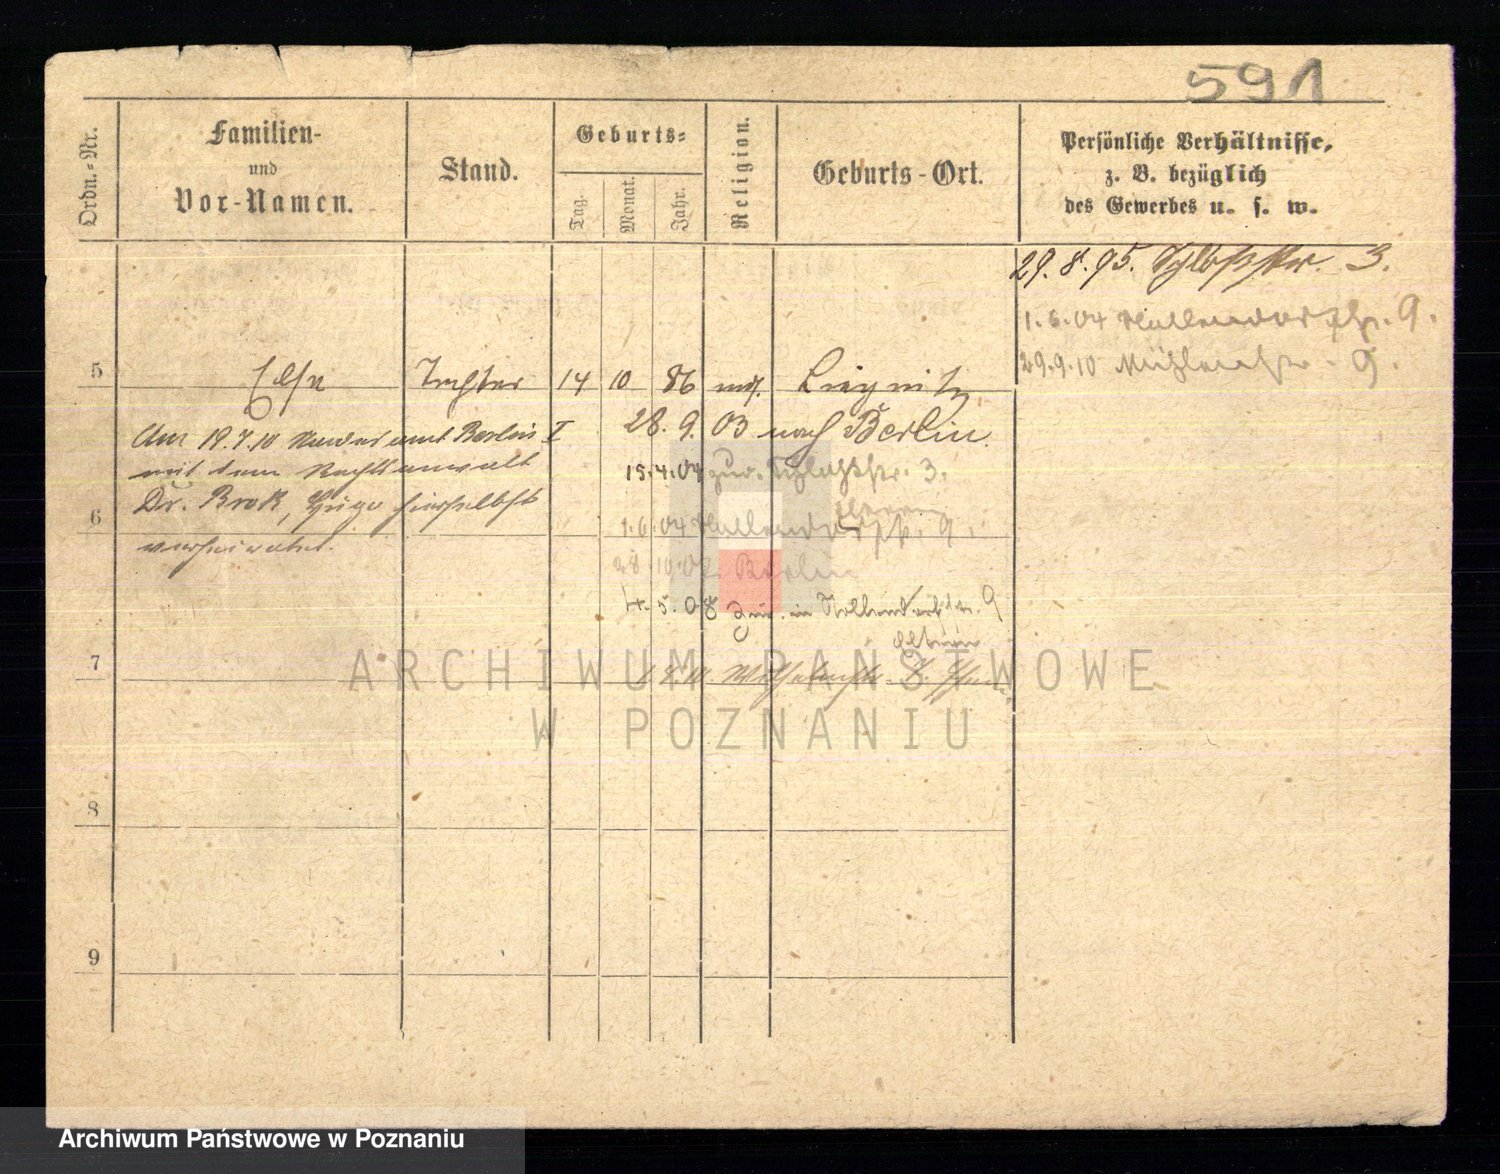 591
Ordn.-Nr.
Familien-
und
Vor-Namen.
Stand.
Geburts-
Tag.
Monat.
Jahr.
Religion.
Geburts-Ort.
Persönliche Verhältnisse,
z. B. bezüglich
des Gewerbes u. s. w.
29.8.95. Schloßstr. 3.
1.6.04 9.
29.9.10 Mühlenstr. 9.
5 Else Tochter 14 10 86 mos. Liegnitz
28.9.03 nach Berlin.
Am 19.7.10 Berlin I
mit dem Rechtsanwalt
Dr. Brok, Hugo hierselbst
verheiratet.
15.4.04 zur. Schloßstr. 3.
6
1.6.04 9.
Berlin
4.5.08 zur. in 9
Eltern
7
8
9
ARCHIWUM PAŃSTWOWE
W POZNANIU
Archiwum Państwowe w Poznaniu